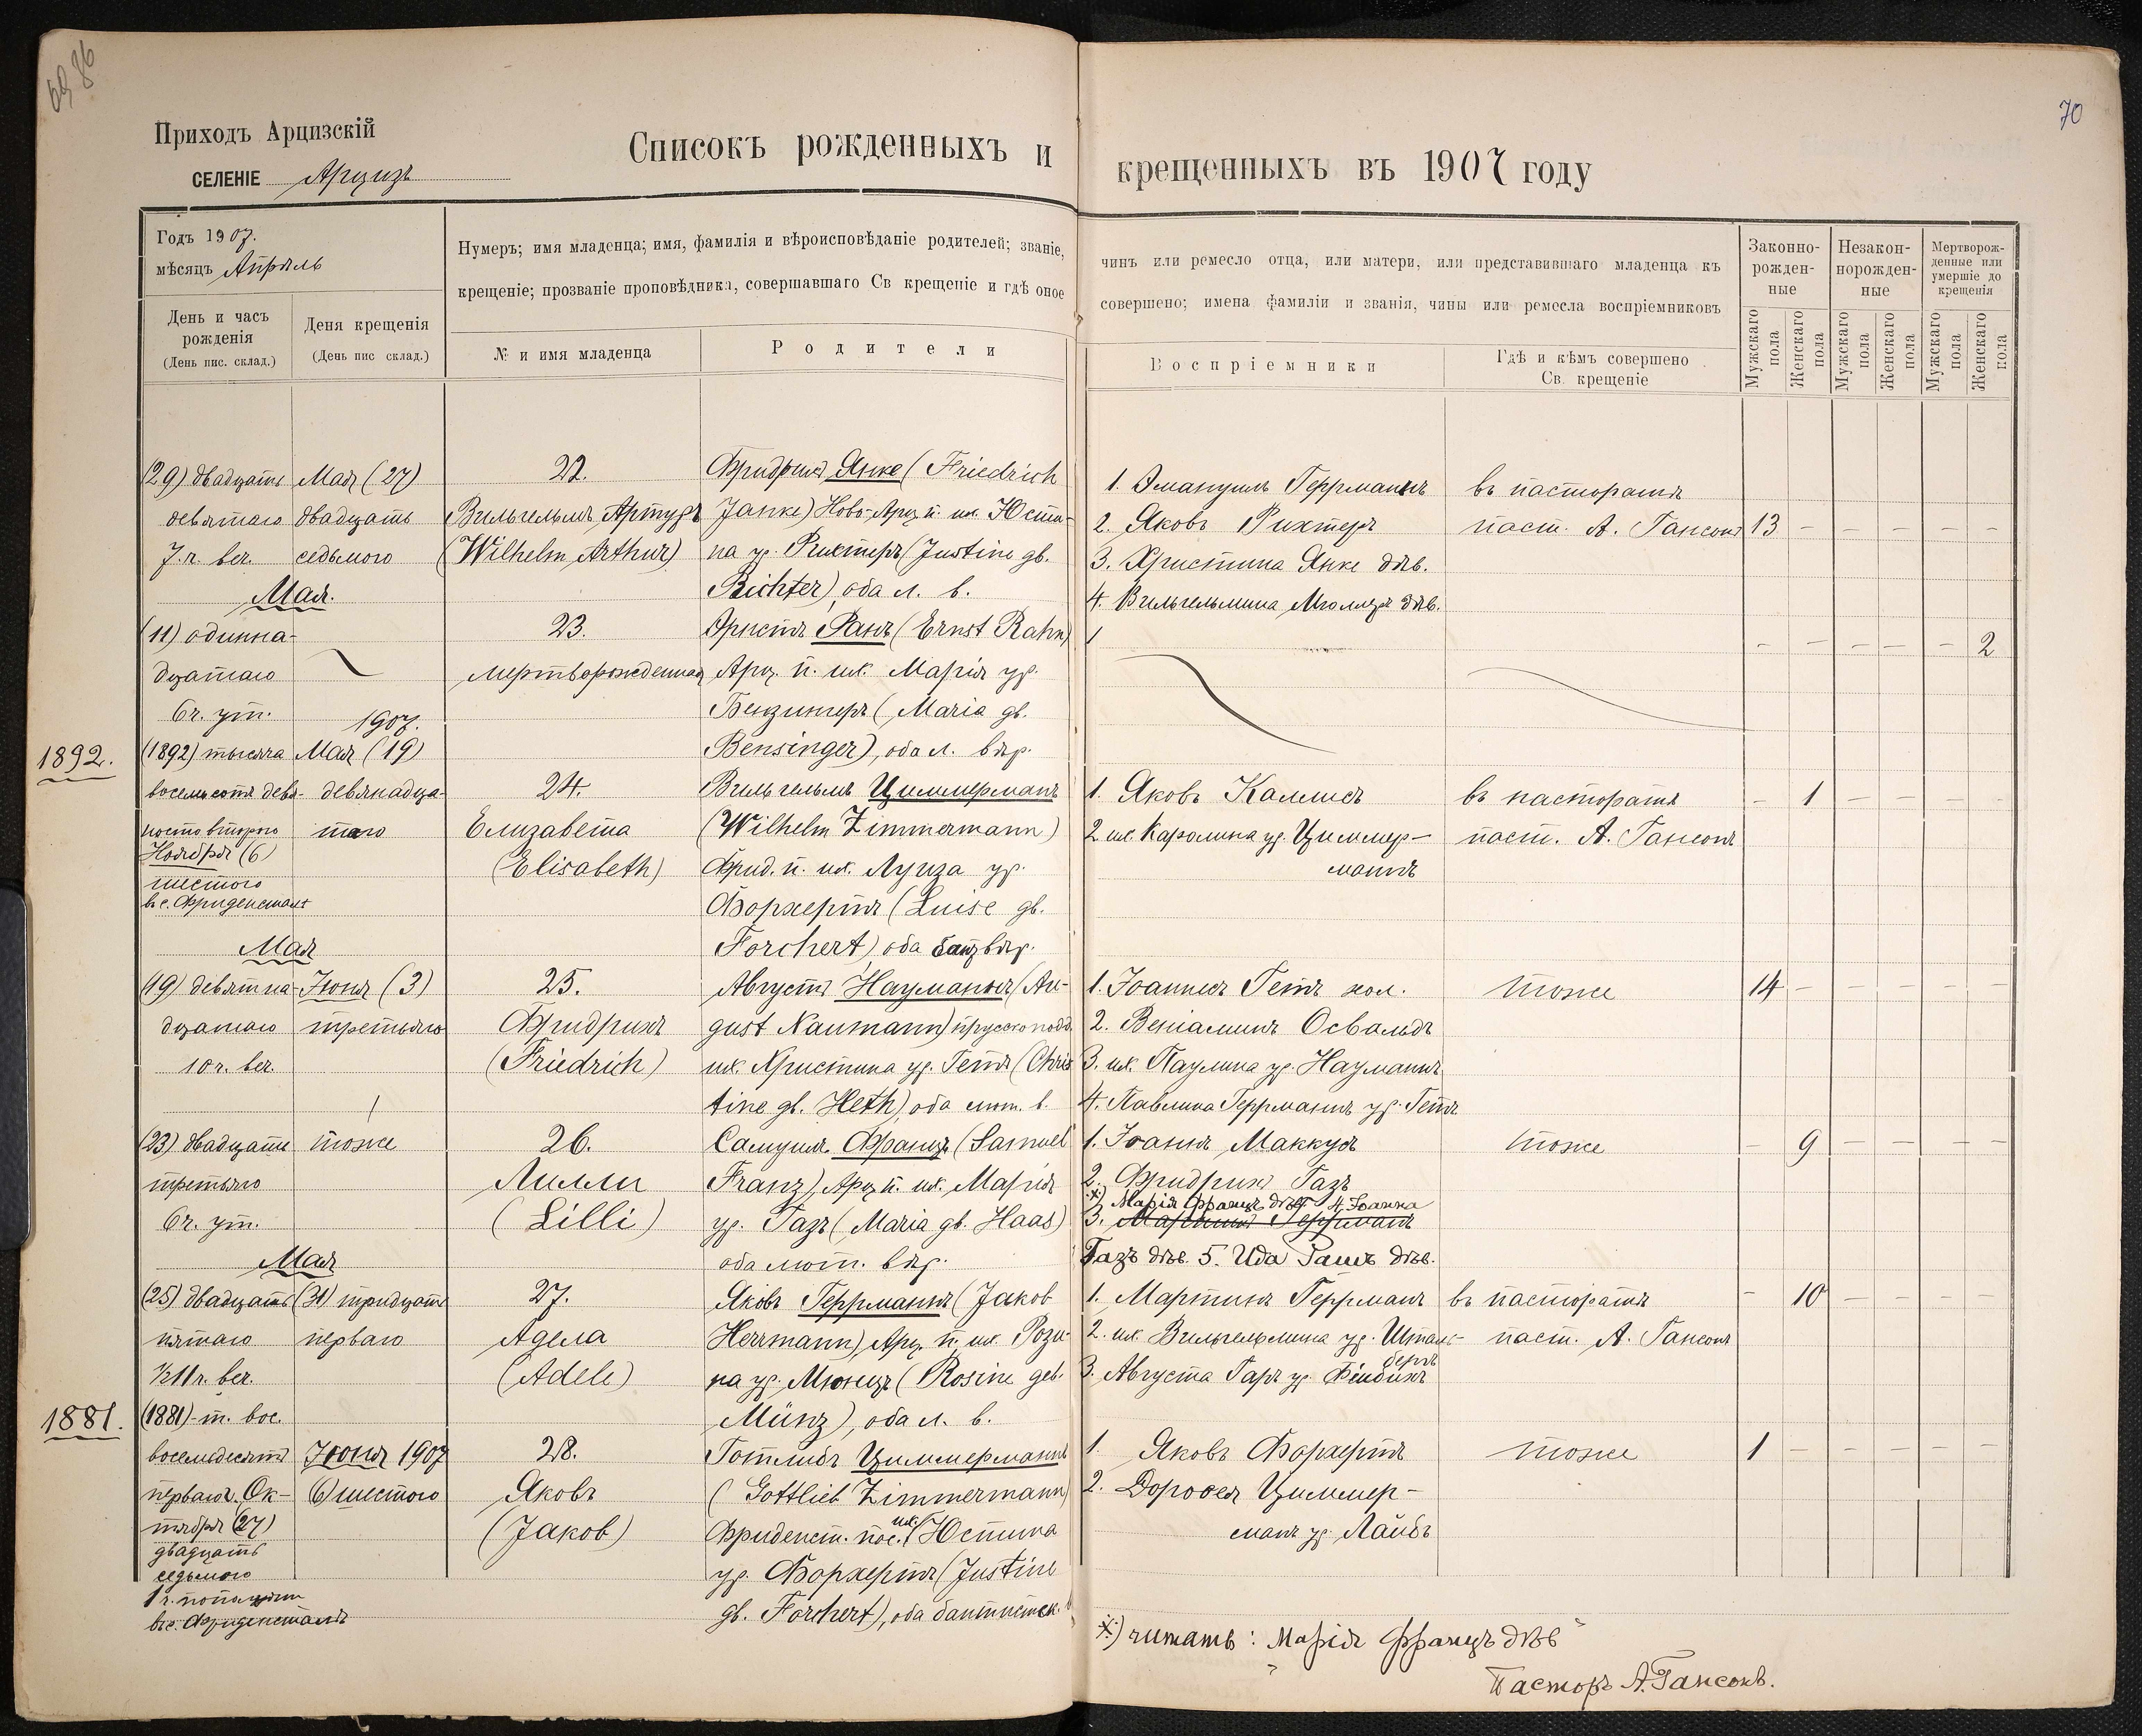 69 86
70
Приходъ Арцизскій
СЕЛЕНІЕ Арцизъ
Списокъ рожденныхъ и крещенныхъ въ 1907 году
Годъ 1907.
мѣсяцъ Апрѣль
День и часъ рожденія
(День пис. склад.)
Деня крещенія
(День пис склад.)
Нумеръ; имя младенца; имя, фамилія и вѣроисповѣданіе родителей; званіе,
крещеніе; прозваніе проповѣдника, совершавшаго Св крещеніе и гдѣ оное
№ и имя младенца
Родители
чинъ или ремесло отца, или матери, или представившаго младенца къ
совершено; имена фамиліи и званія, чины или ремесла воспріемниковъ
Воспріемники
Гдѣ и кѣмъ совершено
Св. крещеніе
Законно-рожден-ные
Незакон-норожден-ные
Мертворож-денные или умершіе до крещенія
Мужскаго пола
Женскаго пола
Мужскаго пола
Женскаго пола
Мужскаго пола
Женскаго пола
(29) двадцать
девятаго
7 ч. веч.
Мая (27)
двадцать
седьмого
22.
Вильгельмъ, Артуръ
(Wilhelm, Arthur)
Фридрихъ Янке (Friedrich
Janke) Ново-Арц. п. их. Юсти-
на ур. Рихтеръ (Justine gb.
Richter), оба л. в.
1. Эмануилъ Геррманнъ
2. Яковъ Рихтеръ
3. Христина Янке дѣв.
4. Вильгельмина Мюллеръ дѣв.
въ пасторатѣ
паст. А. Гансонъ
13 - - - - -
Мая.
(11) одинна-
дцатаго
6 ч. ут.
23.
мертворожденная
Эрнстъ Ранъ (Ernst Rahn)
Арц. п. их. Марія ур.
Бензингеръ (Maria gb.
Bensinger), оба л. вѣр.
1
- - - - - 2
1892.
(1892) тысяча
восемьсотъ девя-
носто второго
Ноября (6)
шестого
въ с. Фриденсталь
1907.
Мая (19)
девянадца-
таго
24.
Елизавета
(Elisabeth)
Вильгельмъ Циммерманъ
(Wilhelm Zimmermann)
Фрид. п. их. Луиза ур.
Форхертъ (Luise gb.
Forchert), оба бапт. вѣр.
1. Яковъ Каллисъ
2. их. Каролина ур. Циммер-
манъ
въ пасторатѣ
паст. А. Гансонъ
- 1 - - - -
Мая
(19) девятна-
дцатаго
10 ч. веч.
Іюня (3)
третьяго
25.
Фридрихъ
(Friedrich)
Августъ Науманнъ (Au-
gust Naumann) прусско подд.
их. Христина ур. Гетъ (Chris
tine gb. Heth), оба лют. в.
1. Іоаннесъ Гетъ хол.
2. Веніаминъ Освальдъ
3. их. Паулина ур. Науманнъ
4. Павлина Геррманнъ ур. Гетъ
тоже
14 - - - - -
(23) двадцать
третьяго
6 ч. ут.
тоже
26.
Лилли
(Lilli)
Самуилъ Францъ (Samuel
Franz), Арц. п. их. Марія
ур. Газъ (Maria gb. Haas)
оба лют. вѣр.
1. Іоаннъ Маккусъ
2. Фридрихъ Газъ
*) Марія Францъ дѣв. 4. Іоанна
3. Мартинъ Геррманъ
Газъ дѣв. 5. Ида Рашъ дѣв.
тоже
- 9 - - - -
Мая
(25) двадцать
пятаго
½11 ч. веч.
(31) тридцать
перваго
27.
Адела
(Adele)
Яковъ Геррманнъ (Jakob
Herrmann), Арц. п. их. Рози-
на ур. Мюнцъ (Rosine geb.
Münz), оба л. в.
1. Мартинъ Геррманъ
2. их. Вильгельмина ур. Шталь-
бергъ
3. Августа Гаръ ур. Фіндикъ
въ пасторатѣ
паст. А. Гансонъ
- 10 - - - -
1881.
(1881)-т. вос.
восемьдесятъ
перваго. Ок-
тября (27)
двадцать
седьмого
1 ч. пополудни
въ с. Фриденсталѣ
Іюня 1907
(6) шестого
28.
Яковъ
(Jakob)
Готлибъ Циммерманнъ
(Gottlieb Zimmermann)
Фриденст. пос. их. Юстина
ур. Форхертъ (Justine
gb. Forchert), оба баптистск. в
1. Яковъ Форхертъ
2. Доровея Циммер-
манъ ур. Лайбъ
тоже
1 - - - - -
*) читать: „Марія Францъ дѣв“
Пасторъ А. Гансонъ.